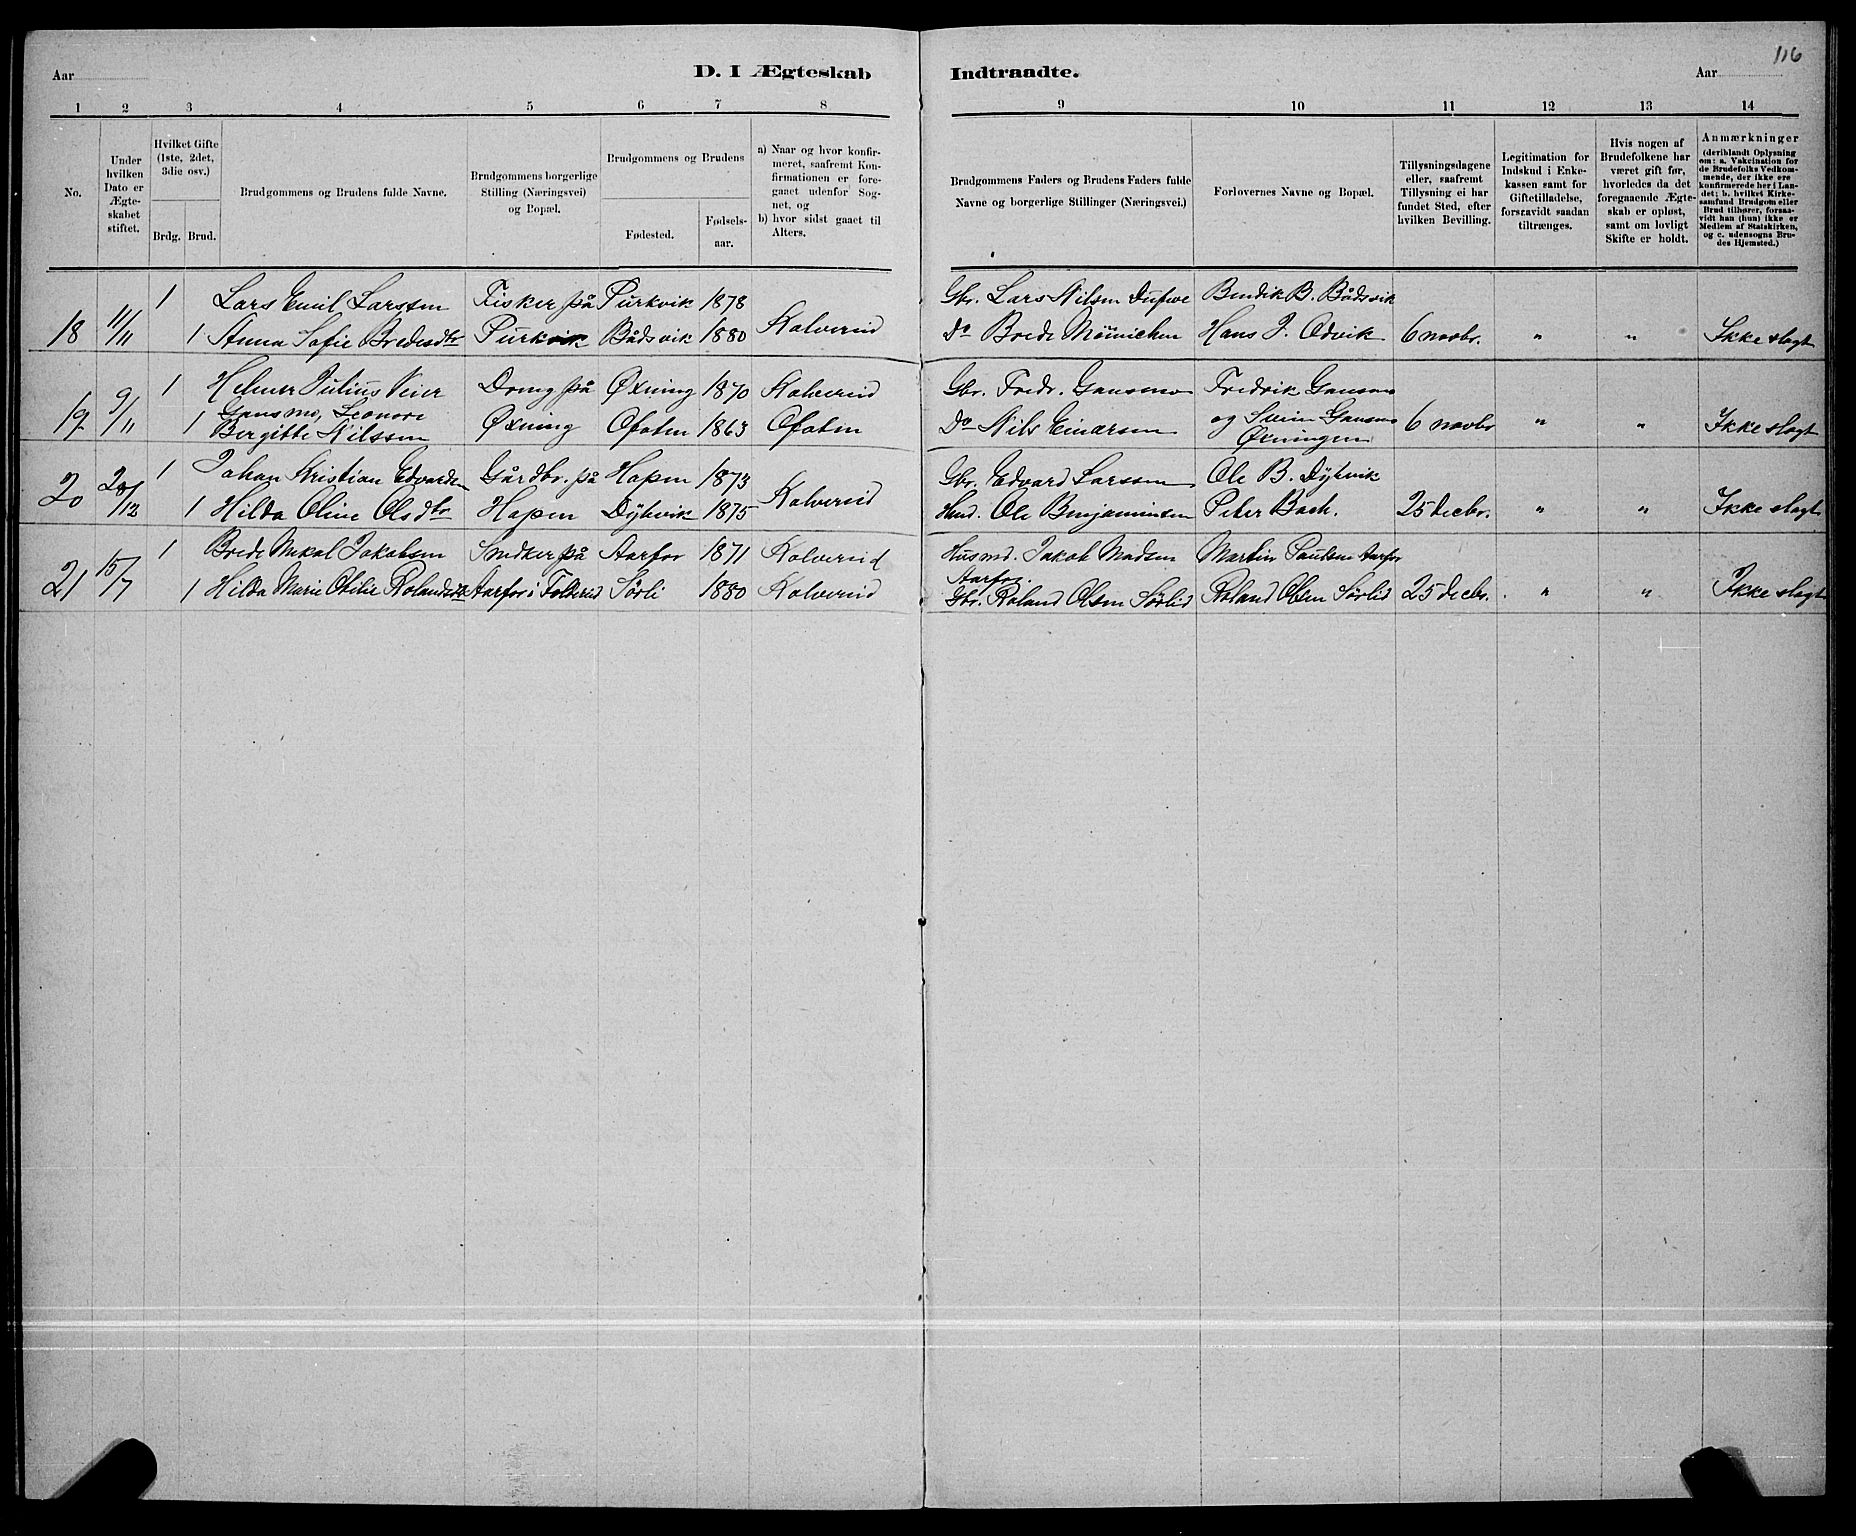 116
Aar
D. I Ægteskab Indtraadte.
Aar
1 2 3 4 5 6 7 8 9 10 11 12 13 14
No.
Under hvilken Dato er Ægteskabet stiftet.
Hvilket Gifte (1ste, 2det, 3die osv.)
Brdg. Brud.
Brudgommens og Brudens fulde Navne.
Brudgommens borgerlige Stilling (Næringsvei) og Bopæl.
Brudgommens og Brudens
Fødested. Fødselsaar.
a) Naar og hvor konfirmeret, saafremt Konfirmationen er foregaaet udenfor Sognet, og
b) hvor sidst gaaet til Alters.
Brudgommens Faders og Brudens Faders fulde Navne og borgerlige Stillinger (Næringsvei.)
Forlovernes Navne og Bopæl.
Tillysningsdagene eller, saafremt Tillysning ei har fundet Sted, efter hvilken Bevilling.
Legitimation for Indskud i Enkekassen samt for Giftetilladelse, forsaavidt saadan tiltrænges.
Hvis nogen af Brudefolkene har været gift før, hvorledes da det foregaaende Ægteskab er opløst, samt om lovligt Skifte er holdt.
Anmærkninger (deriblandt Oplysning om: a. Vakcination for de Brudefolks Vedkommende, der ikke ere konfirmerede her i Landet; b. hvilket Kirkesamfund Brudgom eller Brud tilhører, forsaavidt han (hun) ikke er Medlem af Statskirken, og c. udensogns Brudes Hjemsted.)
1 Lars Emil Larssen Fisker på Purkvik 1878 Gbr. Lars Nilsen Bendik B. Bådsvik
18 11/11 1 Anna Sofie Bredesdtr Purkvik Bådsvik 1880 Kolvereid Do Brede Mönnichen Hans J. Odvik 6 novbr. " " Ikke slagt
1 Helmer Julius Veier Dreng på Øxning 1870 Kolvereid Gbr. Fredr. Gansmo Fredrik Gansmo
19 9/11 1 Gansmo, Leonore Bergitte Nilssen Øxning Ofoten 1863 Ofoten Do Nils Einarsen og Svein Gansmo Øxningen 6 novbr " " Ikke slagt
1 Johan Kristian Edvardsen Gårdbr. på Hopen 1873 Gbr. Edvard Larssen Ole B. Dybvik
20 28/12 1 Hilda Oline Olsdtr Hopen Dybvik 1875 Kolvereid Husmd. Ole Benjaminsen Peter Bach. 25 decbr. " " Ikke slagt
1 Brede Mikal Jakobsen Snedker på Aarfor 1871 Kolvereid Husmd. Jakob Madsen Martin Paulsen Aarfor
Aarfor.
21 15/7 1 Hilda Marie Otilie Rolandsdtr Aarfor i Foldereid Sörli 1880 Kolvereid Gbr. Roland Olsen Sörlid Roland Olsen Sörlid 25 decbr. " " Ikke slagt